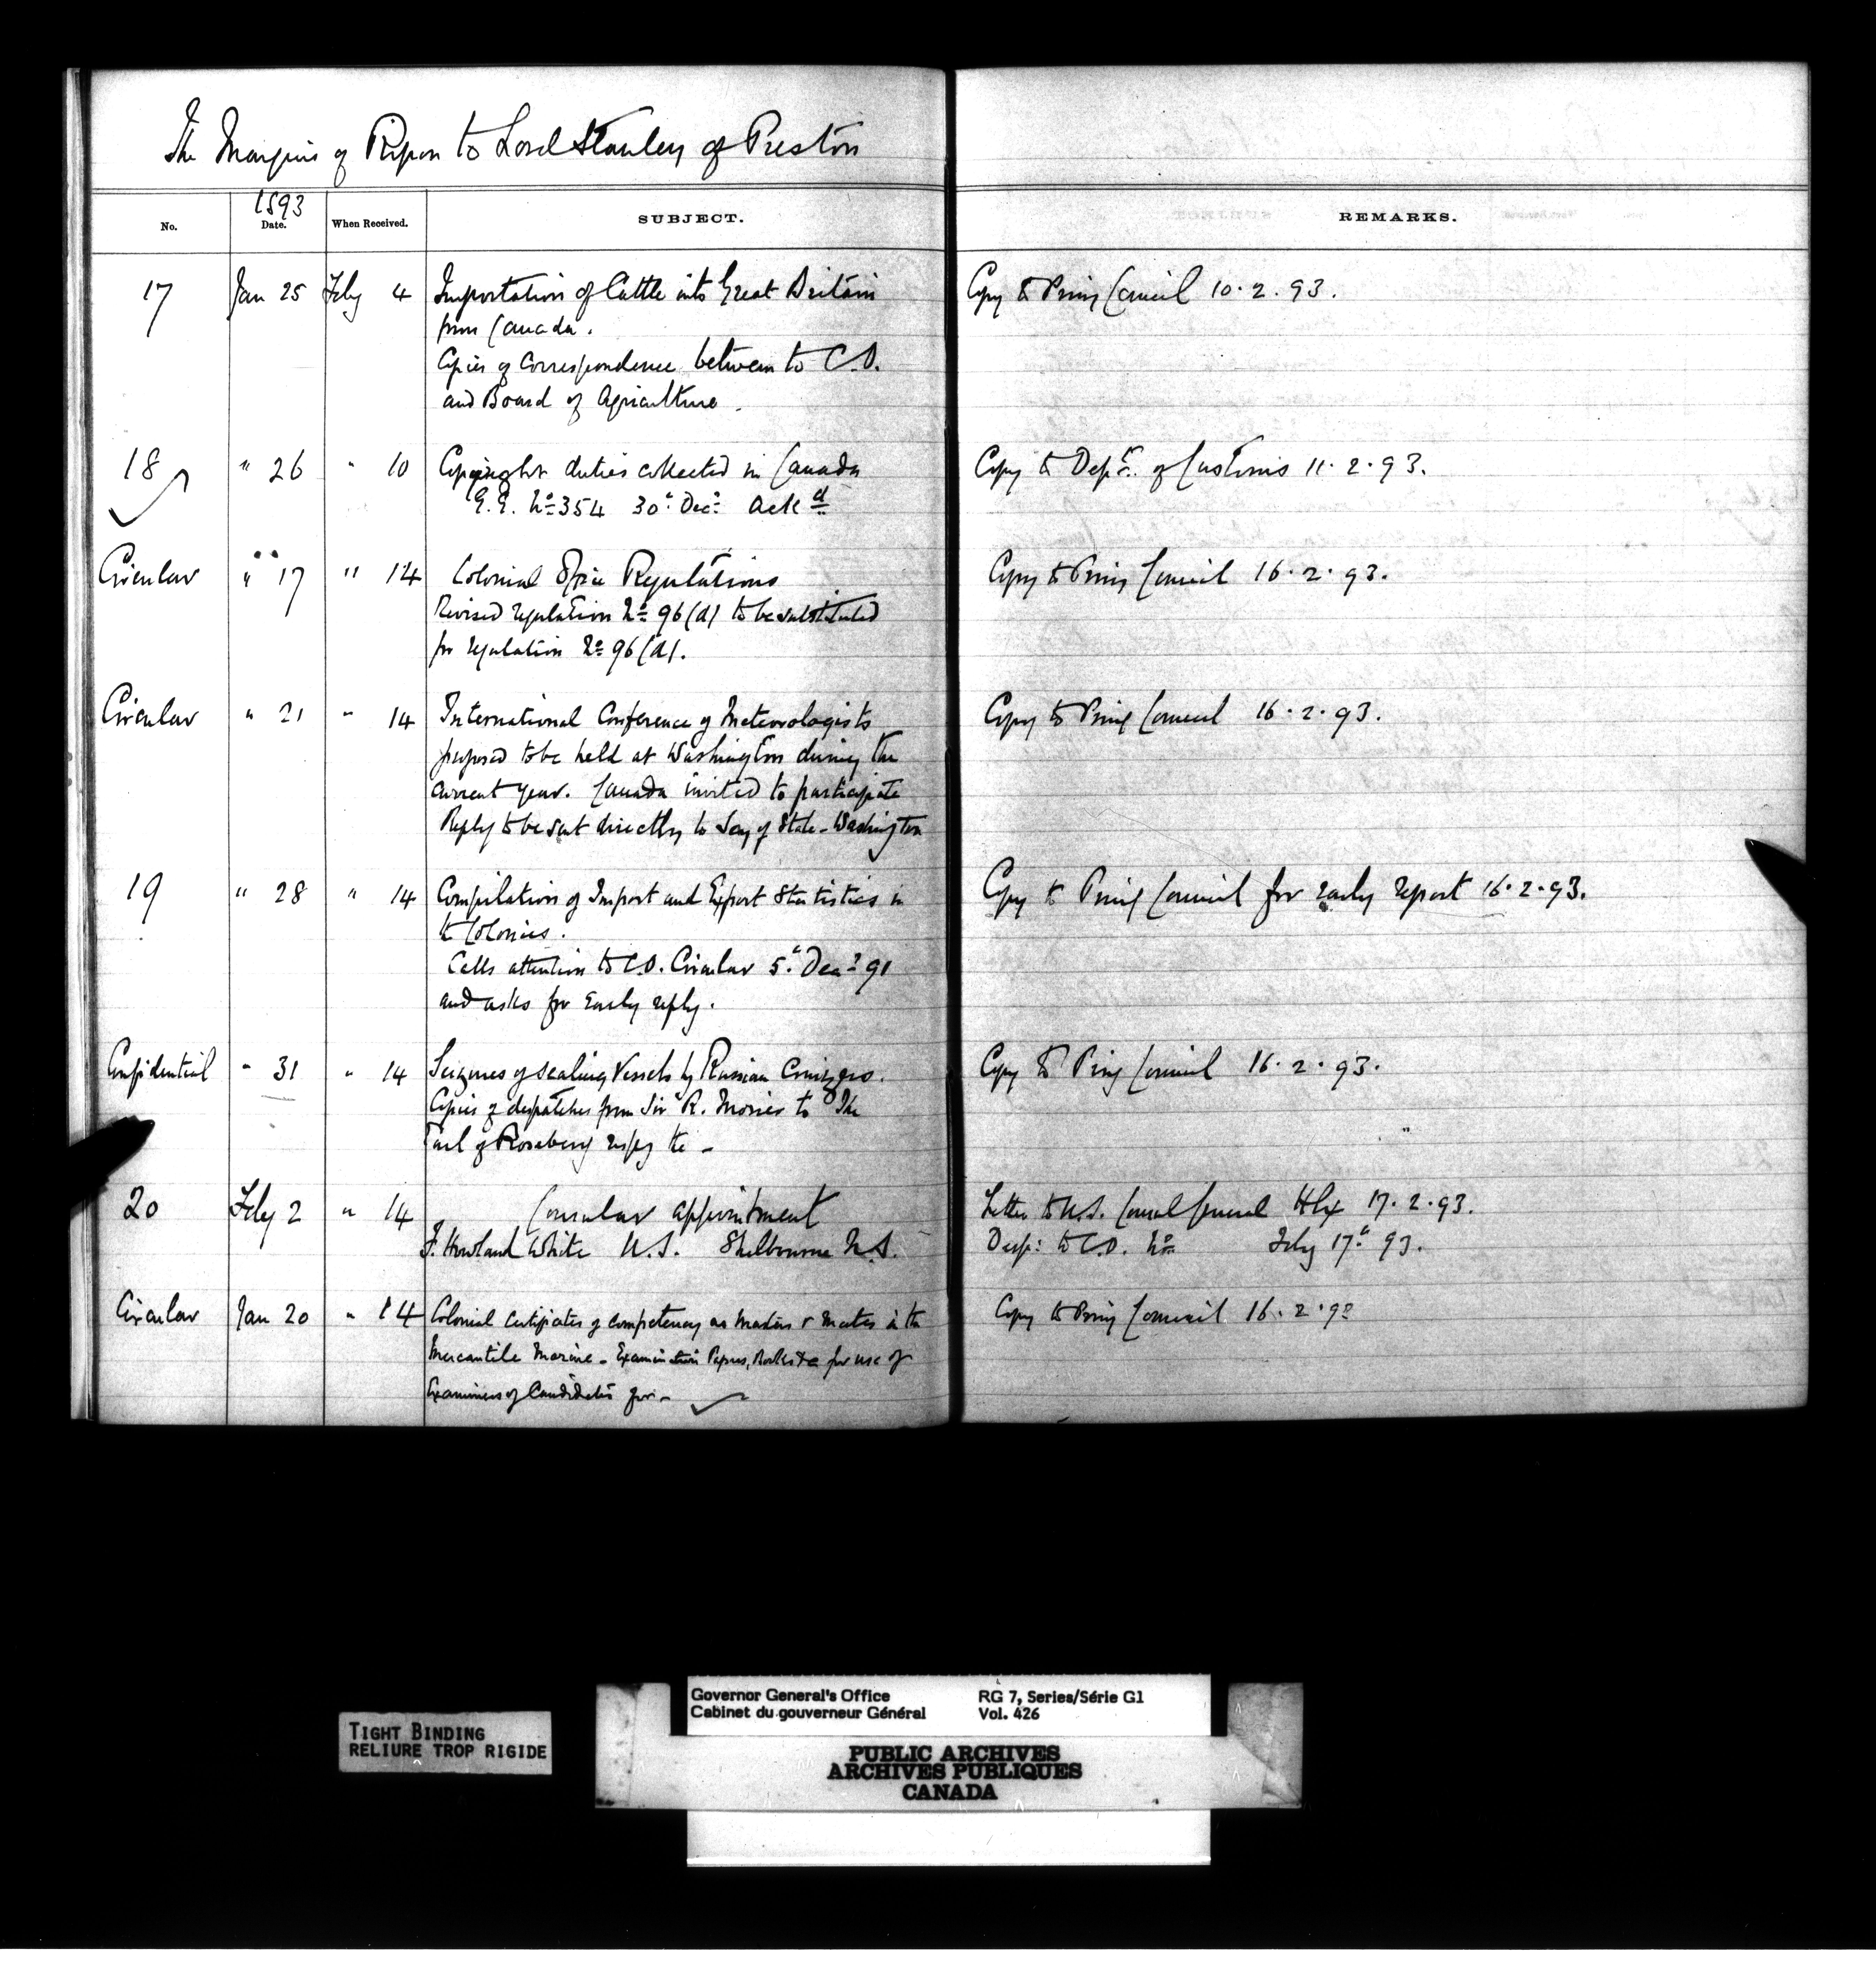 The Marquis of Ripon to Lord Stanley of Preston
1893
No. Date. When Received. SUBJECT. REMARKS.
17 Jan 25 Feby 4 Importation of Cattle into Great Britain Copy to Privy Council 10.2.93.
from Canada.
Copies of Correspondence between to C.O.
and Board of Agriculture.
18 " 26 " 10 Copyright duties collected in Canada Copy to Dept. of Customs 11.2.93.
G.G. No 354 30th Decr Ackd
Circular " 17 " 14 Colonial Office Regulations Copy to Privy Council 16.2.93.
Revised regulation No 96(a) to be substituted
for regulation No 96(a).
Circular " 21 " 14 International Conference of Meteorologists Copy to Privy Council 16.2.93.
proposed to be held at Washington during the
current year. Canada invited to participate
Reply to be sent directly to Secy of State - Washington
19 " 28 " 14 Compilation of Import and Export Statistics in Copy to Privy Council for early report 16.2.93.
to Colonies.
Calls attention to C.O. Circular 5th Decr 91
and asks for early reply.
Confidential " 31 " 14 Seizures of sealing Vessels by Russian Cruizers. Copy to Privy Council 16.2.93.
Copies of despatches from Sir R. Morier to The
Earl of Rosebery respg the -
20 Feby 2 " 14 Consular appointment Letter to U.S. Consul General Hfx 17.2.93.
F. Howland White U.S. Shelbourne N.S. Desp: to C.O. No Feby 17th 93.
Circular Jan 20 " 14 Colonial Certificates of competency as Masters & Mates in the Copy to Privy Council 16.2.93
Mercantile Marine - Examination Papers, Books &c for use of
Examiners of Candidates for -
TIGHT BINDING
RELIURE TROP RIGIDE
Governor General's Office RG 7, Series/Série G1
Cabinet du gouverneur Général Vol. 426
PUBLIC ARCHIVES
ARCHIVES PUBLIQUES
CANADA